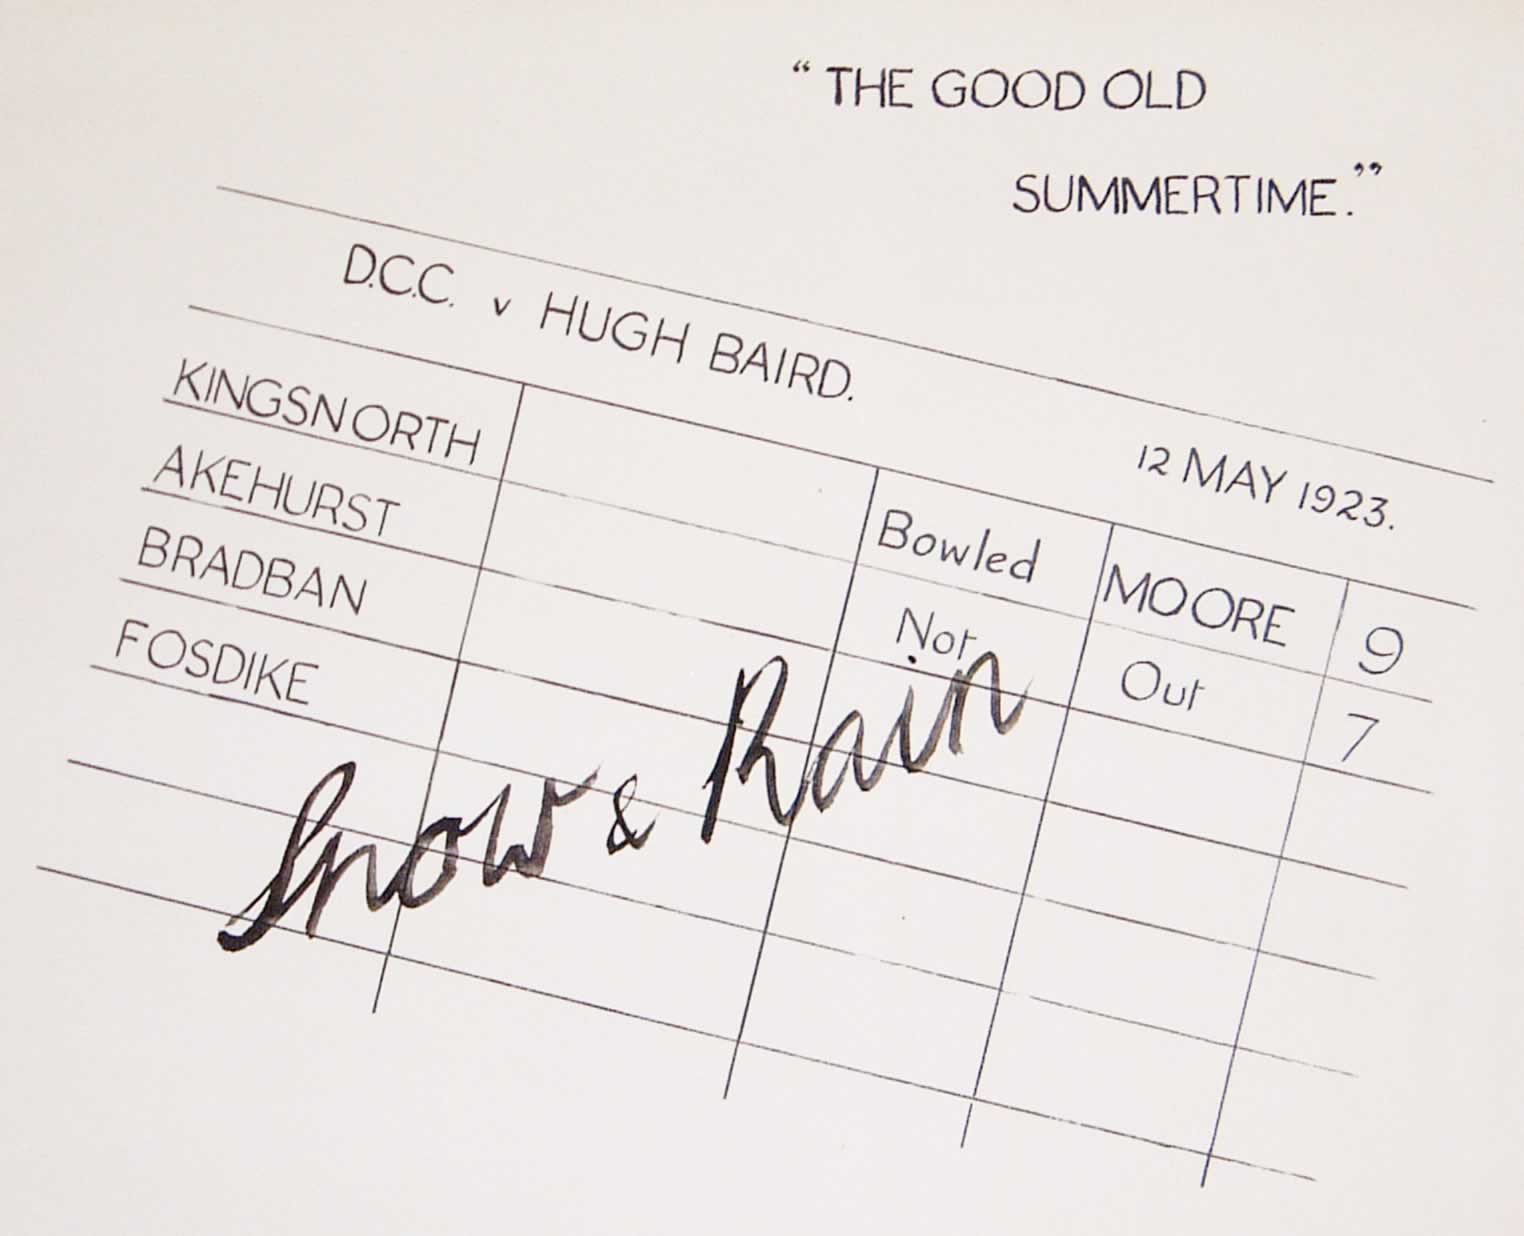 “ THE GOOD OLD
SUMMERTIME.”
D.C.C. v HUGH BAIRD.
12 MAY 1923.
KINGSNORTH Bowled MOORE 9
AKEHURST Not Out 7
BRADBAN
FOSDIKE
Snow & Rain